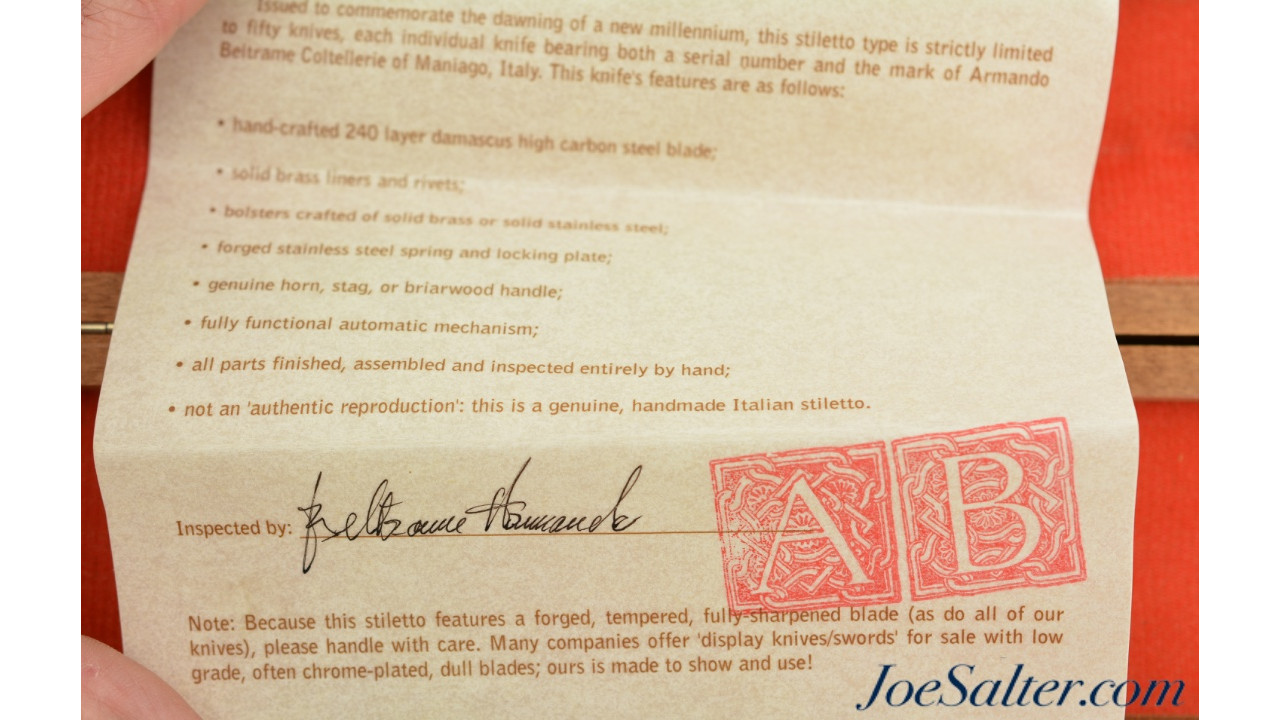 Issued to commemorate the dawning of a new millennium, this stiletto type is strictly limited
to fifty knives, each individual knife bearing both a serial number and the mark of Armando
Beltrame Coltellerie of Maniago, Italy. This knife's features are as follows:
• hand-crafted 240 layer damascus high carbon steel blade;
• solid brass liners and rivets;
• bolsters crafted of solid brass or solid stainless steel;
• forged stainless steel spring and locking plate;
• genuine horn, stag, or briarwood handle;
• fully functional automatic mechanism;
• all parts finished, assembled and inspected entirely by hand;
• not an 'authentic reproduction': this is a genuine, handmade Italian stiletto.
Inspected by: Beltrame Armando
A B
Note: Because this stiletto features a forged, tempered, fully-sharpened blade (as do all of our
knives), please handle with care. Many companies offer 'display knives/swords' for sale with low
grade, often chrome-plated, dull blades; ours is made to show and use!
JoeSalter.com